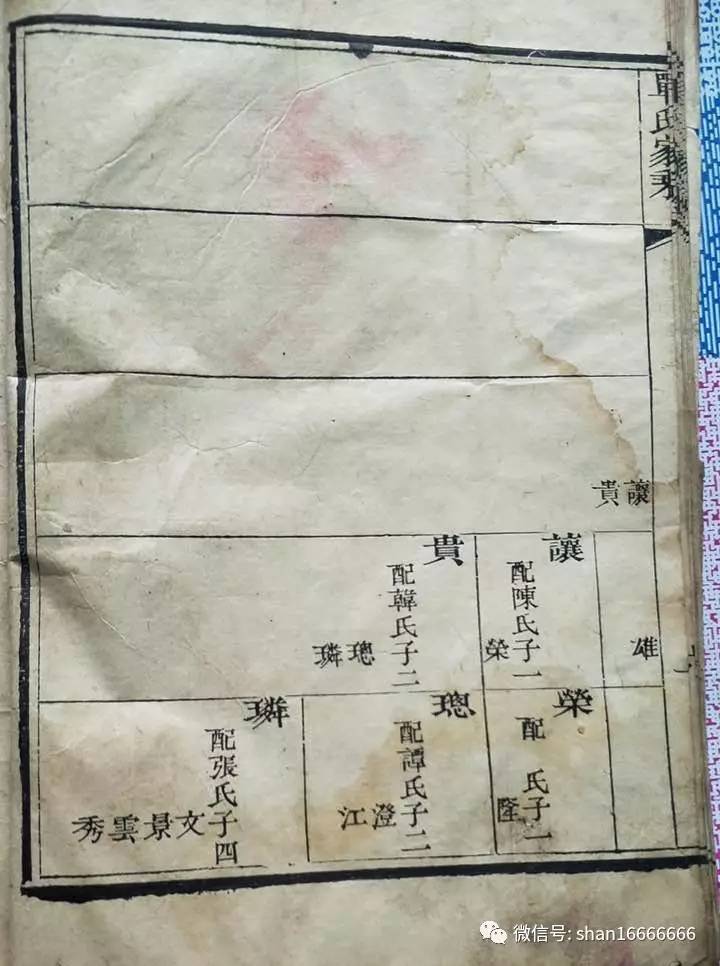 單氏家乘
讓
貴
雄
讓
配陳氏子一
榮
貴
配韓氏子二
璁 璘
榮
配 氏子一
璁
配譚氏子二
澄 江
璘
配張氏子四
文 景 雲 秀
微信号: shan16666666